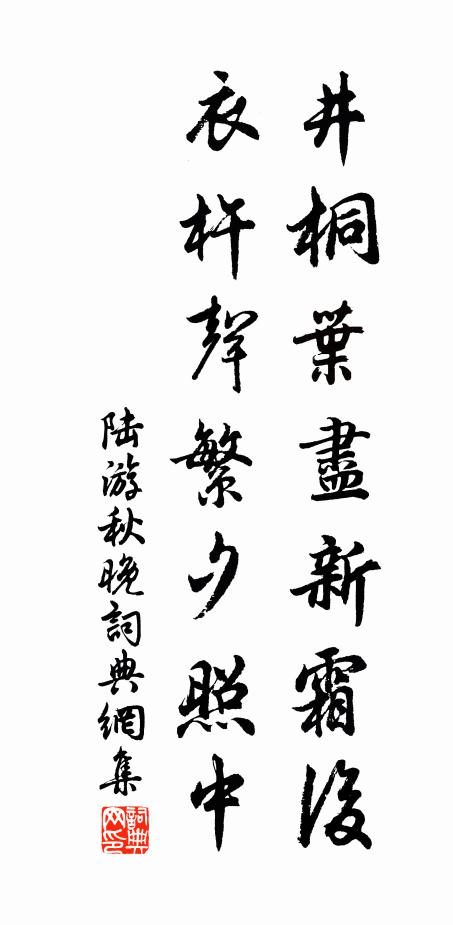 井桐葉盡新霜後
衣杵聲繁夕照中
陸游秋晚詞典網集
詞典网印